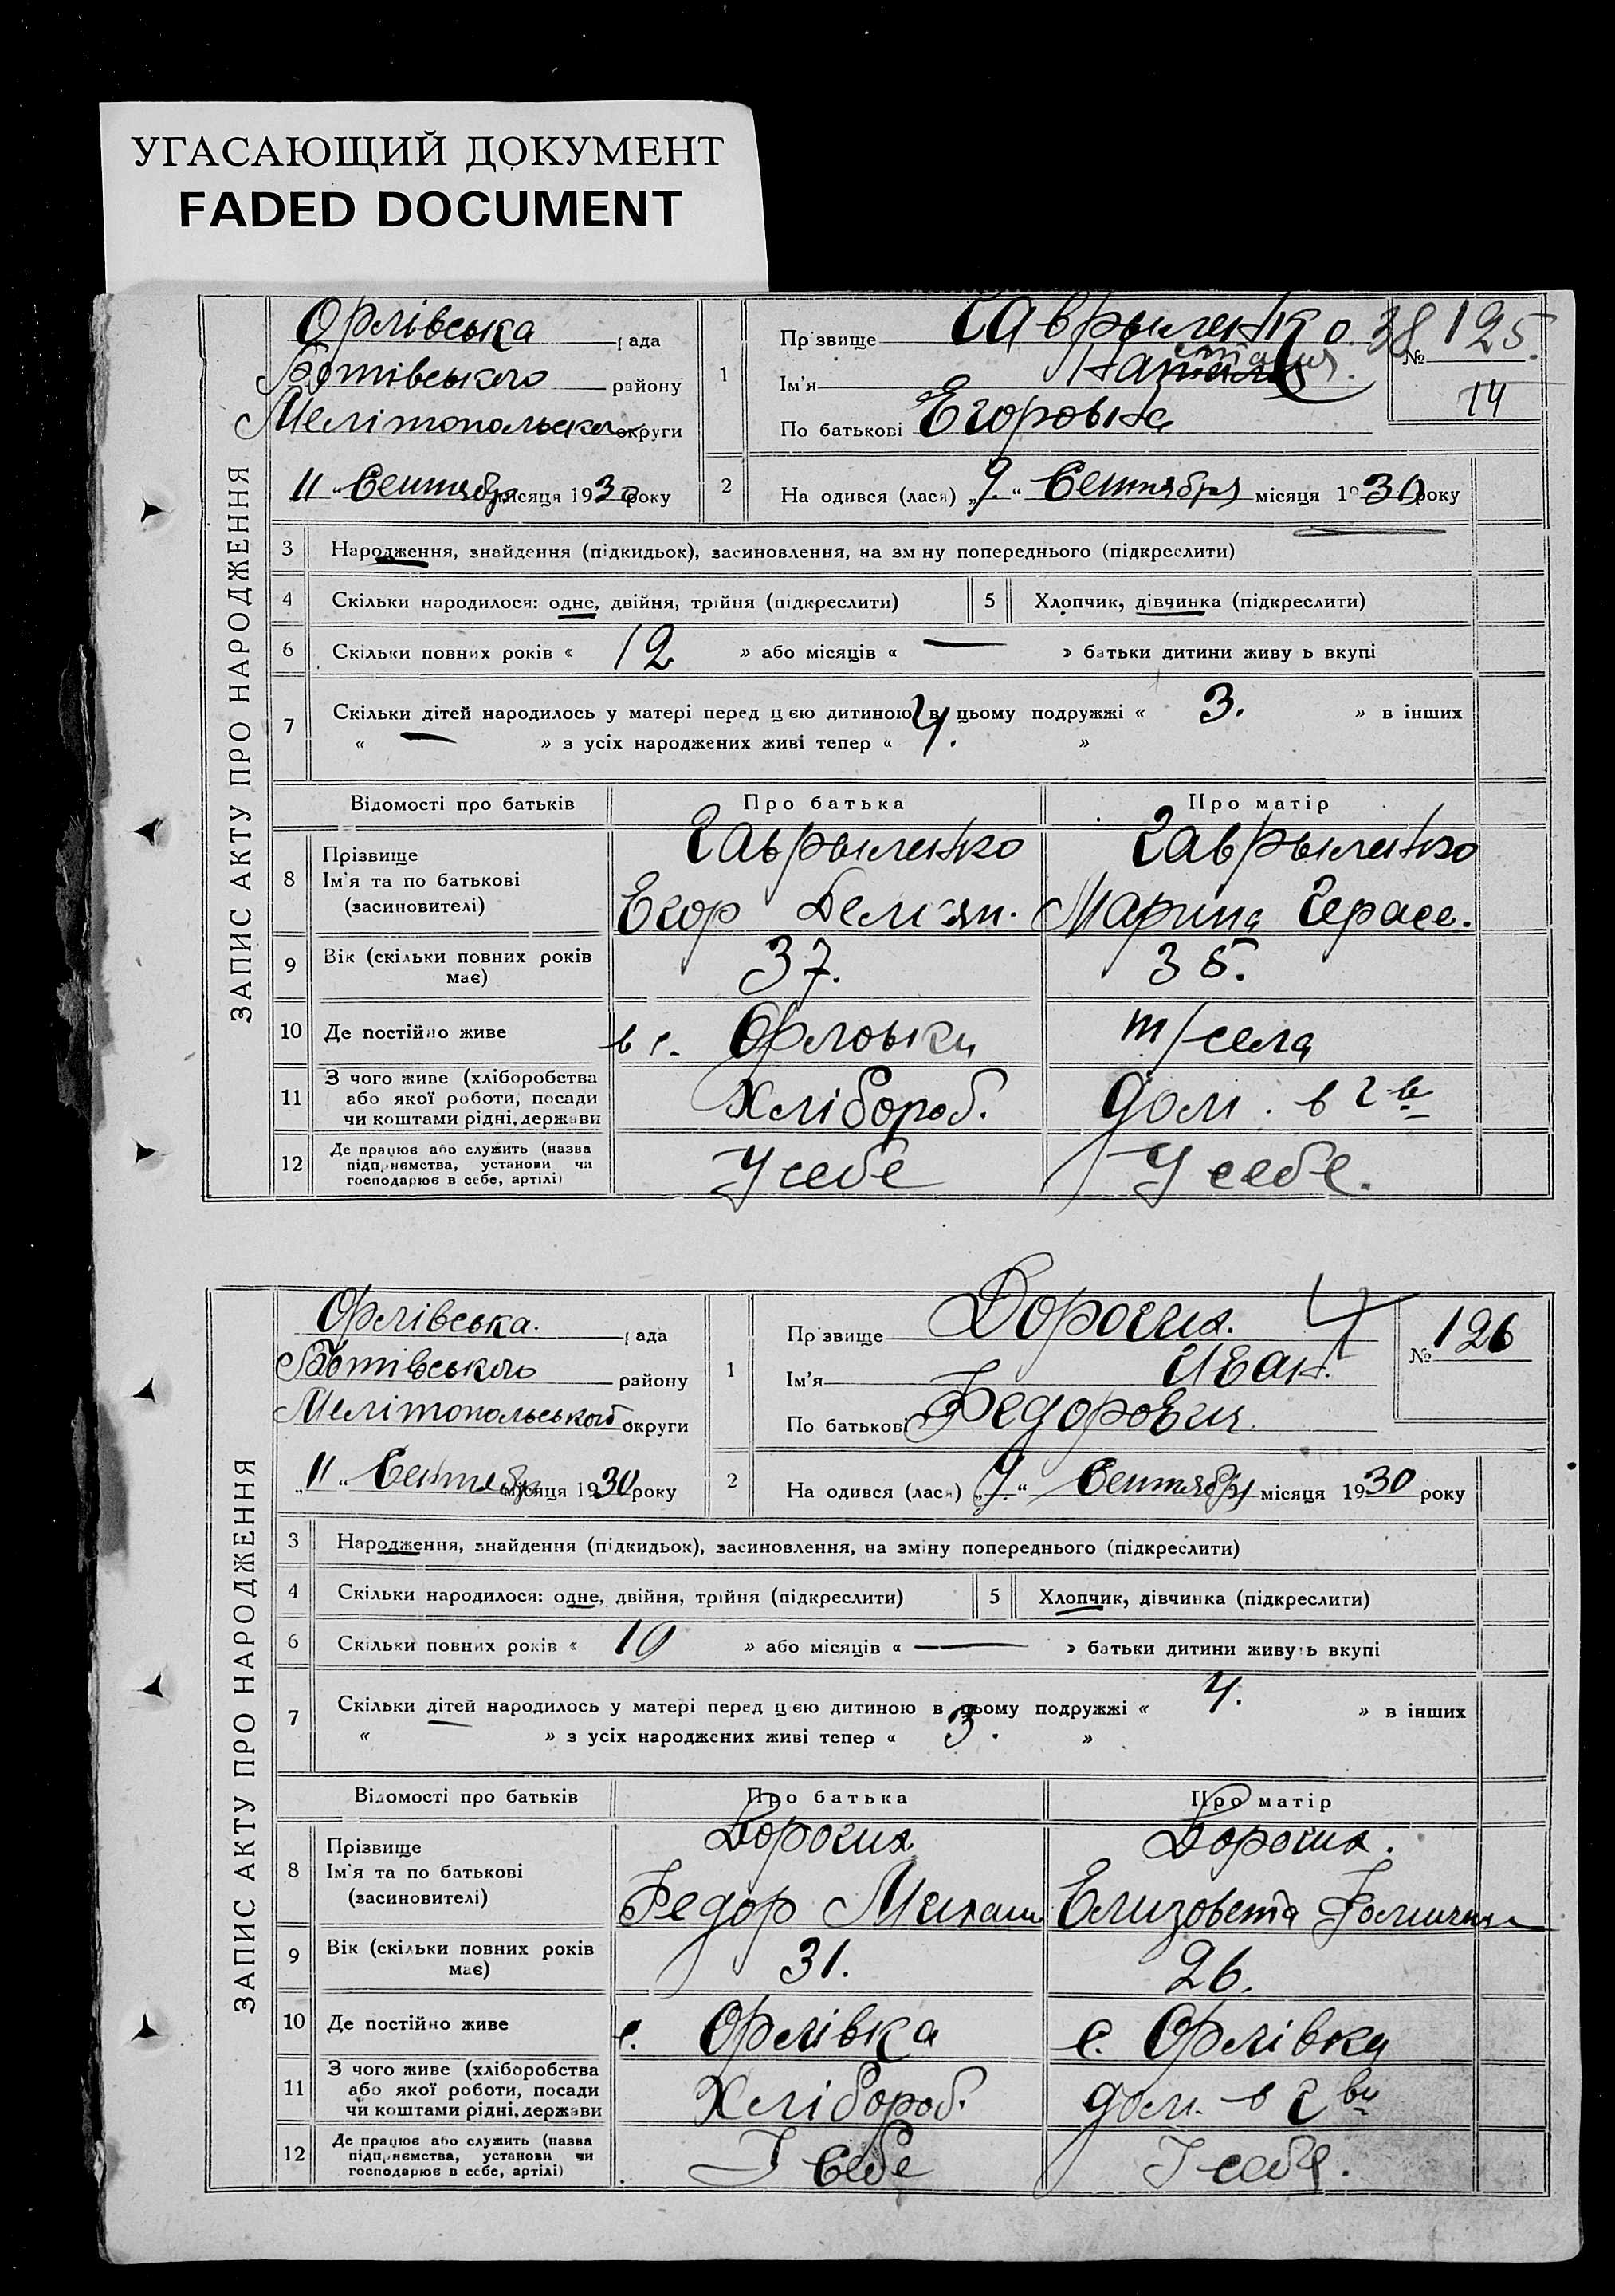 УГАСАЮЩИЙ ДОКУМЕНТ
FADED DOCUMENT
ЗАПИС АКТУ ПРО НАРОДЖЕННЯ
Орлівська рада
Ботівського району
Мелітопольсько округи
11 " Сентябр місяця 1930 року
1 Прізвище Гаврыленко 38 № 125.
14
Ім'я
По батькові Егоровна
2 На одився (лася) „9." Сентября місяця 1930 року
3 Народження, знайдення (підкидьок), засиновлення, на зм ну попереднього (підкреслити)
4 Скільки народилося: одне, двійня, трійня (підкреслити) 5 Хлопчик, дівчинка (підкреслити)
6 Скільки повних років « 12 » або місяців « — » батьки дитини живу ь вкупі
7 Скільки дітей народилось у матері перед цєю дитиною в цьому подружжі « 3. » в інших
« — » з усіх народжених живі тепер « »
Відомості про батьків Про батька Про матір
8 Прізвище Гаврыленко Гаврыленко
Ім'я та по батькові Егор Демян. Марина Герас.
(засиновителі)
9 Вік (скільки повних років має) 37. 35.
10 Де постійно живе в с. Орловки т/села
11 З чого живе (хліборобства або якої роботи, посади чи коштами рідні, держави Хлібороб. дом. в г ве
12 Де працює або служить (назва підприємства, установи чи господарює в себе, артілі) У себе У себе.
ЗАПИС АКТУ ПРО НАРОДЖЕННЯ
Орлівська. рада
Ботівського району
Мелітопольського округи
„11" Сентябр місяця 1930 року
1 Прізвище № 126
Ім'я Иван.
По батькові Федорович
2 На одився (лася) „9." Сентября місяця 1930 року
3 Народження, знайдення (підкидьок), засиновлення, на зміну попереднього (підкреслити)
4 Скільки народилося: одне, двійня, трійня (підкреслити) 5 Хлопчик, дівчинка (підкреслити)
6 Скільки повних років « 10 » або місяців « — » батьки дитини живуть вкупі
7 Скільки дітей народилось у матері перед цєю дитиною в цьому подружжі « 4. » в інших
« — » з усіх народжених живі тепер « 3. »
Відомості про батьків Про батька Про матір
8 Прізвище
Ім'я та по батькові Федор Михаил Елизовета
(засиновителі)
9 Вік (скільки повних років має) 31. 26.
10 Де постійно живе с. Орлівка с. Орлівка
11 З чого живе (хліборобства або якої роботи, посади чи коштами рідні, держави Хлібороб. дом. в г ви
12 Де працює або служить (назва підприємства, установи чи господарює в себе, артілі) У себе У себе.